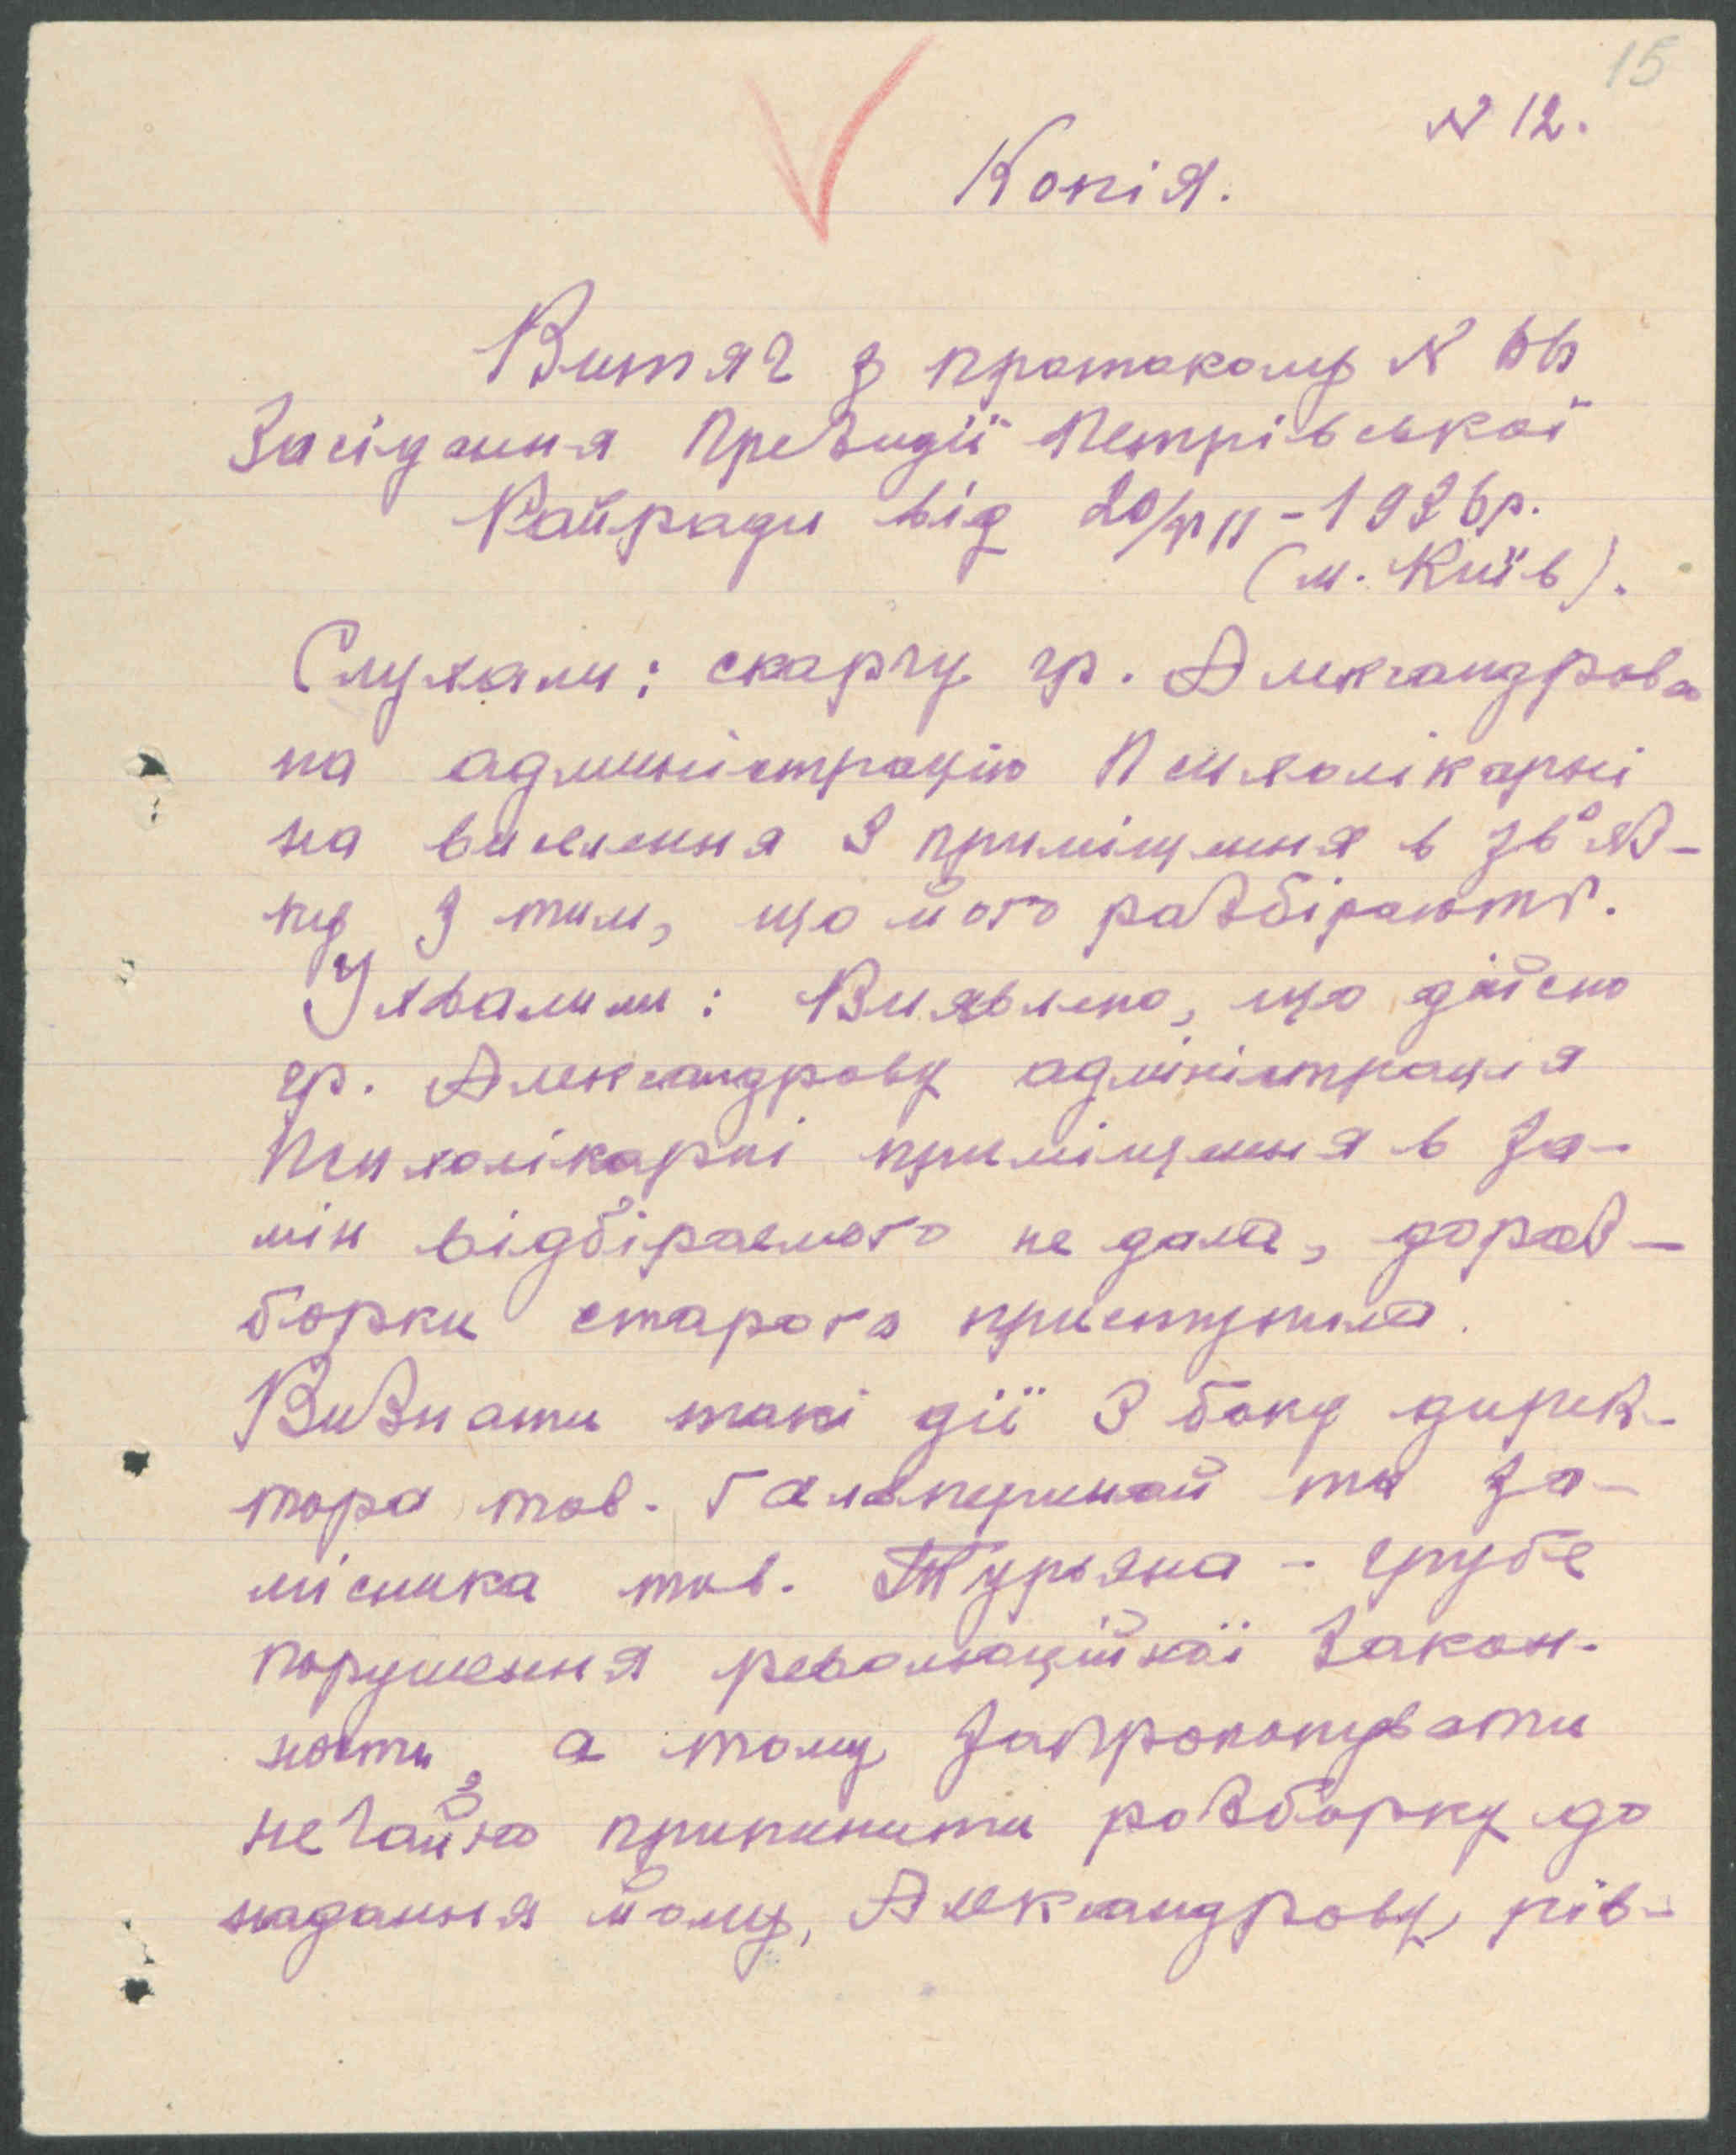 15
N 12.
Копія.
Витяг з протоколу N 66
Засідання Президії Петрівської
Райради від 20/VIII - 1936 р.
(м. Київ).
Слухали: скаргу гр. Александрова
на адміністрацію Психолікарні
на виселення з приміщення в зв'яз-
ку з тим, що його разбірають.
Ухвалили: Виявлено, що дійсно
гр. Александрову адміністрація
Психолікарні приміщення в за-
мін відбіраемого не дала, до раз-
борки старого приступила.
Визнати такі дії з боку дирек-
тора тов. Гальпериной та за-
місника тов. Турьяна - грубе
порушення революційної закон-
ности, а тому запропонувати
негайно припинити розборку до
надання йому, Александрову, рів-